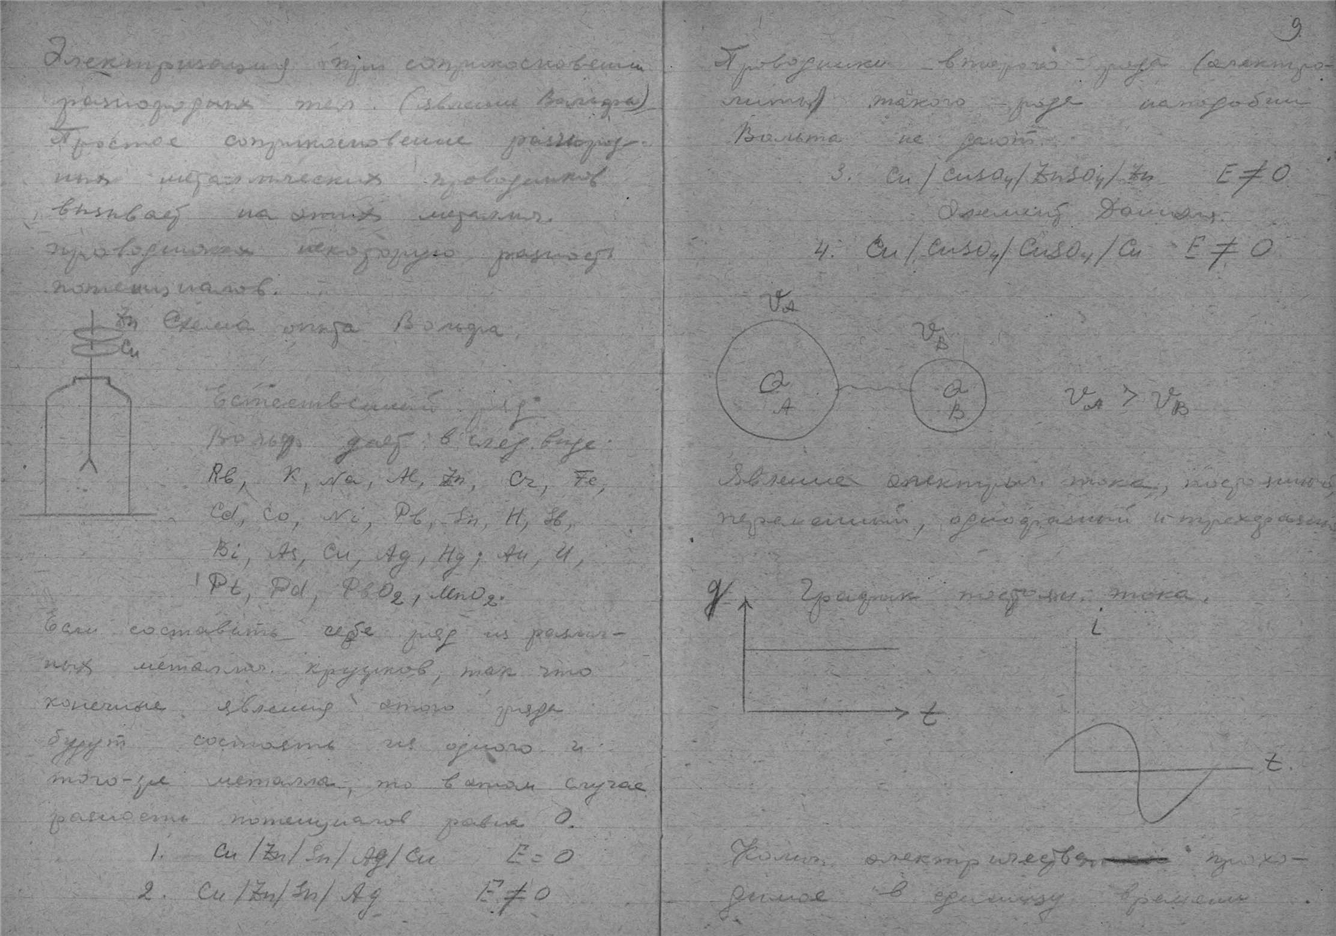 Электризация при соприкосновении
разнородных тел. (явление Вольта)
Простое соприкосновение разнород-
ных металлических проводников
вызывает на этих металлич.
проводниках некоторую разность
потенциалов.
Zn Схема опыта Вольта.
Cu
Естественный ряд
Вольта дает в след. виде
Rb, K, Na, Al, Zn, Cr, Fe,
Cd, Co, Ni, Pb, Sn, H, Sb,
Bi, As, Cu, Ag, Hg; Au, U,
Pt, Pd, PbO2, MnO2.
Если составить себе ряд из различ-
ных металлич. кружков, так что
конечные явления этого ряда
будут состоять из одного и
того-же металла, то в этом случае
разность потенциалов равна 0.
1. Cu/Zn/Sn/Ag/Cu E = 0
2. Cu/Zn/Sn/Ag E ≠ 0
9
Проводники второго рода (электро-
литы) такого ряда наподобии
Вольта не дают.
3. Cu/CuSO4/ZnSO4/Zn E ≠ 0
Элемент Даниэля.
4. Cu/CuSO4/CuSO4/Cu E ≠ 0
VA
VB
Q A
Q B
VA > VB
Явление электрич. тока, постоянный
переменный, однофазный и трехфазный
График постоян. тока.
g
i
t
t.
Колич. электричества прохо-
димое в единицу времени